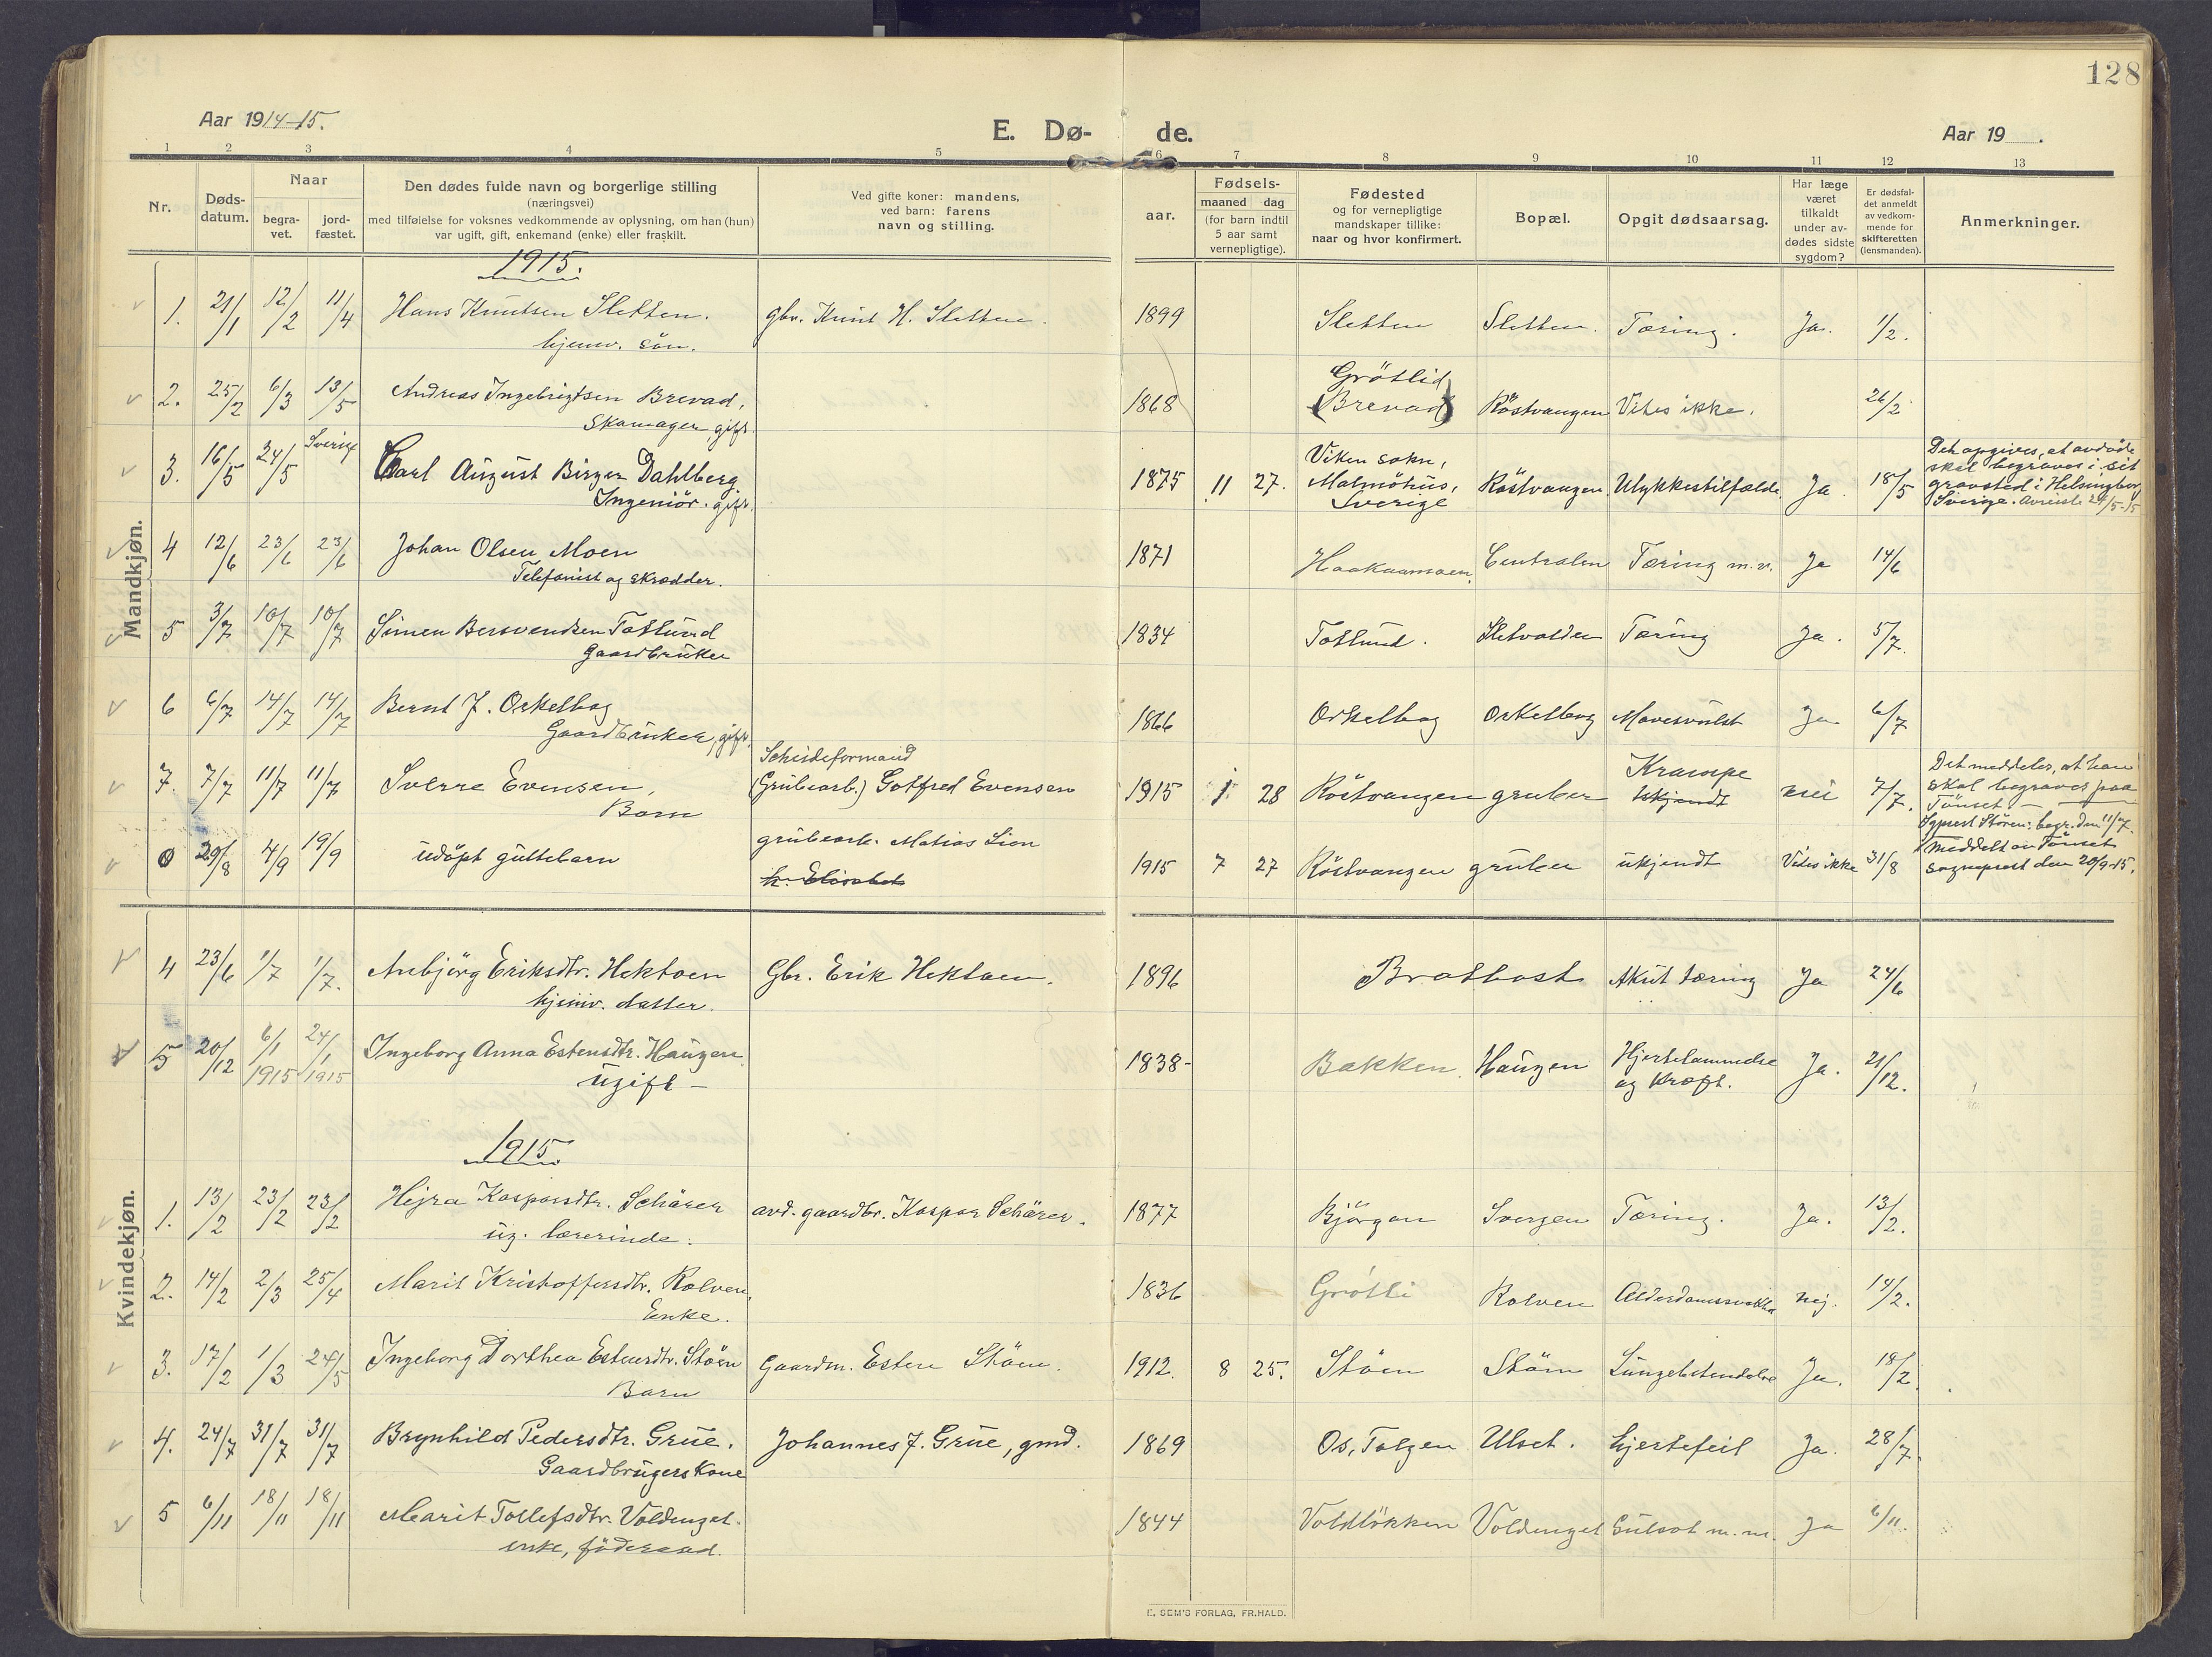 128
Aar 1914-15.
E. Dø-
de.
Aar 19 .
1 2 3 4 5 6 7 8 9 10 11 12 13
Nr.
Døds-
datum.
Naar
begra-
vet.
jord-
fæstet.
Den dødes fulde navn og borgerlige stilling
(næringsvei)
med tilføielse for voksnes vedkommende av oplysning, om han (hun)
var ugift, gift, enkemand (enke) eller fraskilt.
Ved gifte koner: mandens,
ved barn: farens
navn og stilling.
aar.
Fødsels-
maaned dag
(for barn indtil
5 aar samt
vernepligtige).
Fødested
og for vernepligtige
mandskaper tillike:
naar og hvor konfirmert.
Bopæl.
Opgit dødsaarsag.
Har læge
været
tilkaldt
under av-
dødes sidste
sygdom?
Er dødsfal-
det anmeldt
av vedkom-
mende for
skifteretten
(lensmanden).
Anmerkninger.
Mandkjøn.
1915.
1. 21/1 12/2 11/4 Hans Knutsen Sletten. gbr. Knut H. Sletten. 1899 Sletten Sletten. Tæring. Ja. 1/2.
hjemv. sön.
2. 25/2 6/3 13/5 Andreas Ingebrigtsen Brevad, 1868 Grötlid (Brevad) Röstvangen Vites ikke. 26/2
Skomager, gift.
3. 16/5 24/5 Sverige Carl August Birger Dahlberg 1875 11 27. Viken sokn, Malmöhus, Sverige Röstvangen Ulykkestilfælde Ja. 18/5
Ingeniör. gift.
Det opgives, at avdöde
skal begraves i sit
gravsted i Helsingborg
Sverige. Avreiste 24/5-15
4 12/6 23/6 23/6 Johan Olsen Moen 1871 Haakaamoen. Centralen Tæring m.v. Ja 14/6
Telefonist og skrædder.
5 3/7 10/7 10/7 Simen Bersvendsen Toslund 1834 Toslund. Sletvolden Tæring Ja. 5/7.
Gaardbruker
6 6/7 14/7 14/7 Bernt J. Orkelbog 1866 Orkelbog Orkelbog Mavesvulst Ja 6/7
Gaardbruker, gift.
7. 7/7 11/7 11/7 Sverre Evensen, Scheideformand (Grubearb.) Gotfred Evensen 1915 1 28 Röstvangen gruber Krampe ukjendt nei 7/7.
Barn
Det meddeles, at han
skal begraves paa
Tönset —
Sgprest Stören: begr. den 11/7.
0 29/8 4/9 19/9 udöpt guttebarn grubearb. Matias Lien 1915 7 27 Röstvangen gruber ukjendt Vites ikke 31/8
h. Elisabet
Meddelt av Tönset
sogneprest den 20/9-15.
Kvindekjøn.
4 23/6 1/7 1/7. Anbjörg Eriksdtr. Hektoen Gbr. Erik Hektoen. 1896 Brattbost Akut tæring Ja 24/6
hjemv. datter.
5 20/12 6/1 1915 24/1 1915 Ingeborg Anna Estensdtr. Haugen 1838- Bakken. Haugen Hjertelammelse og Kræft. Ja. 21/12.
ugift —
1915.
1. 13/2 23/2 23/2 Hejra Kaspersdtr. Schärer avd. gaardbr. Kaspar Schärer. 1877 Björgan Sverjen Tæring. Ja. 13/2.
ug. lærerinde.
2. 14/2 2/3 25/4 Marit Kristoffersdtr. Rolven, 1836 Grötli Rolven Alderdomssvakhet nej. 14/2.
Enke.
3. 17/2 1/3 24/5 Ingeborg Dorthea Estensdtr. Stöen Gaardm. Esten Stöen. 1912. 8 25. Stöen Stöen Lungebetendelse Ja. 18/2.
Barn
4. 24/7 31/7 31/7 Brynhild Pedersdtr. Grue. Johannes J. Grue, gmd. 1869 Os, Tolgen Ulset. hjertefeil Ja. 28/7.
Gaardbrugers Kone
5 6/11 18/11 18/11 Marit Tollefsdtr. Voldenget. 1844 Voldlökken Voldenget Gulsot m.m. Ja 6/11.
enke, föderaad.
E. SEM'S FORLAG, FR.HALD.